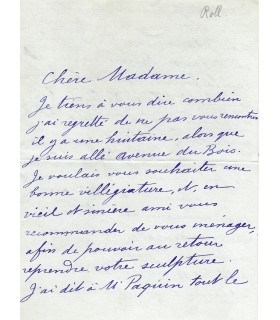 Roll
Chère Madame.
Je tiens à vous dire combien
j'ai regretté de ne pas vous rencontrer
il y a une huitaine, alors que
je suis allé avenue du Bois.
Je voulais vous souhaiter une
bonne villégiature, et, en
vieil et sincère ami vous
recommander de vous ménager,
afin de pouvoir au retour
reprendre votre sculpture.
J'ai dit à Mr Paquin tout le